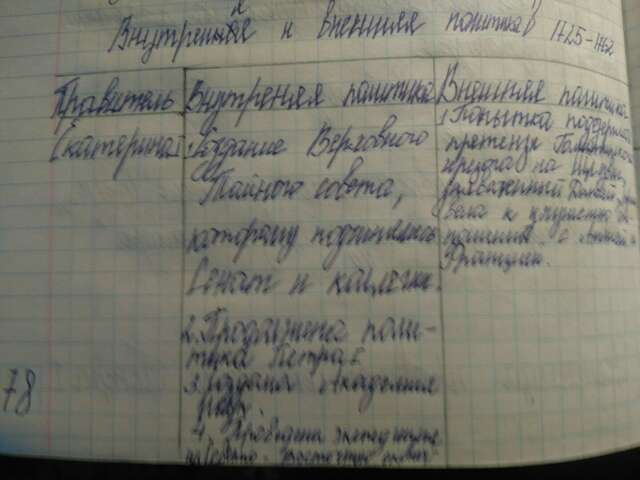 Внутренняя и внешняя политика в 1725-1762
Правитель
Внутреняя политика
Внешняя политика
Екатерина I
1. Создание Верховного
Тайного совета,
которому подчинялись
Сенат и коллегии.
2. Продолжена поли-
тика Петра I
3. создана Академия
Наук
4. Проведена экспедиция
1. Попытка поддержать
претензии
герцога на
захваченный Данией,
вела к ухудшению от-
ношений с Англией
Францией.
78